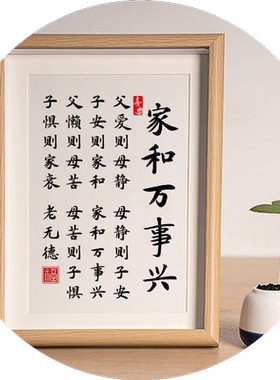 家和万事兴
父爱则母静 母静则子安
子安则家和 家和万事兴
父懒则母苦 母苦则子惧
子惧则家衰 老无德
福